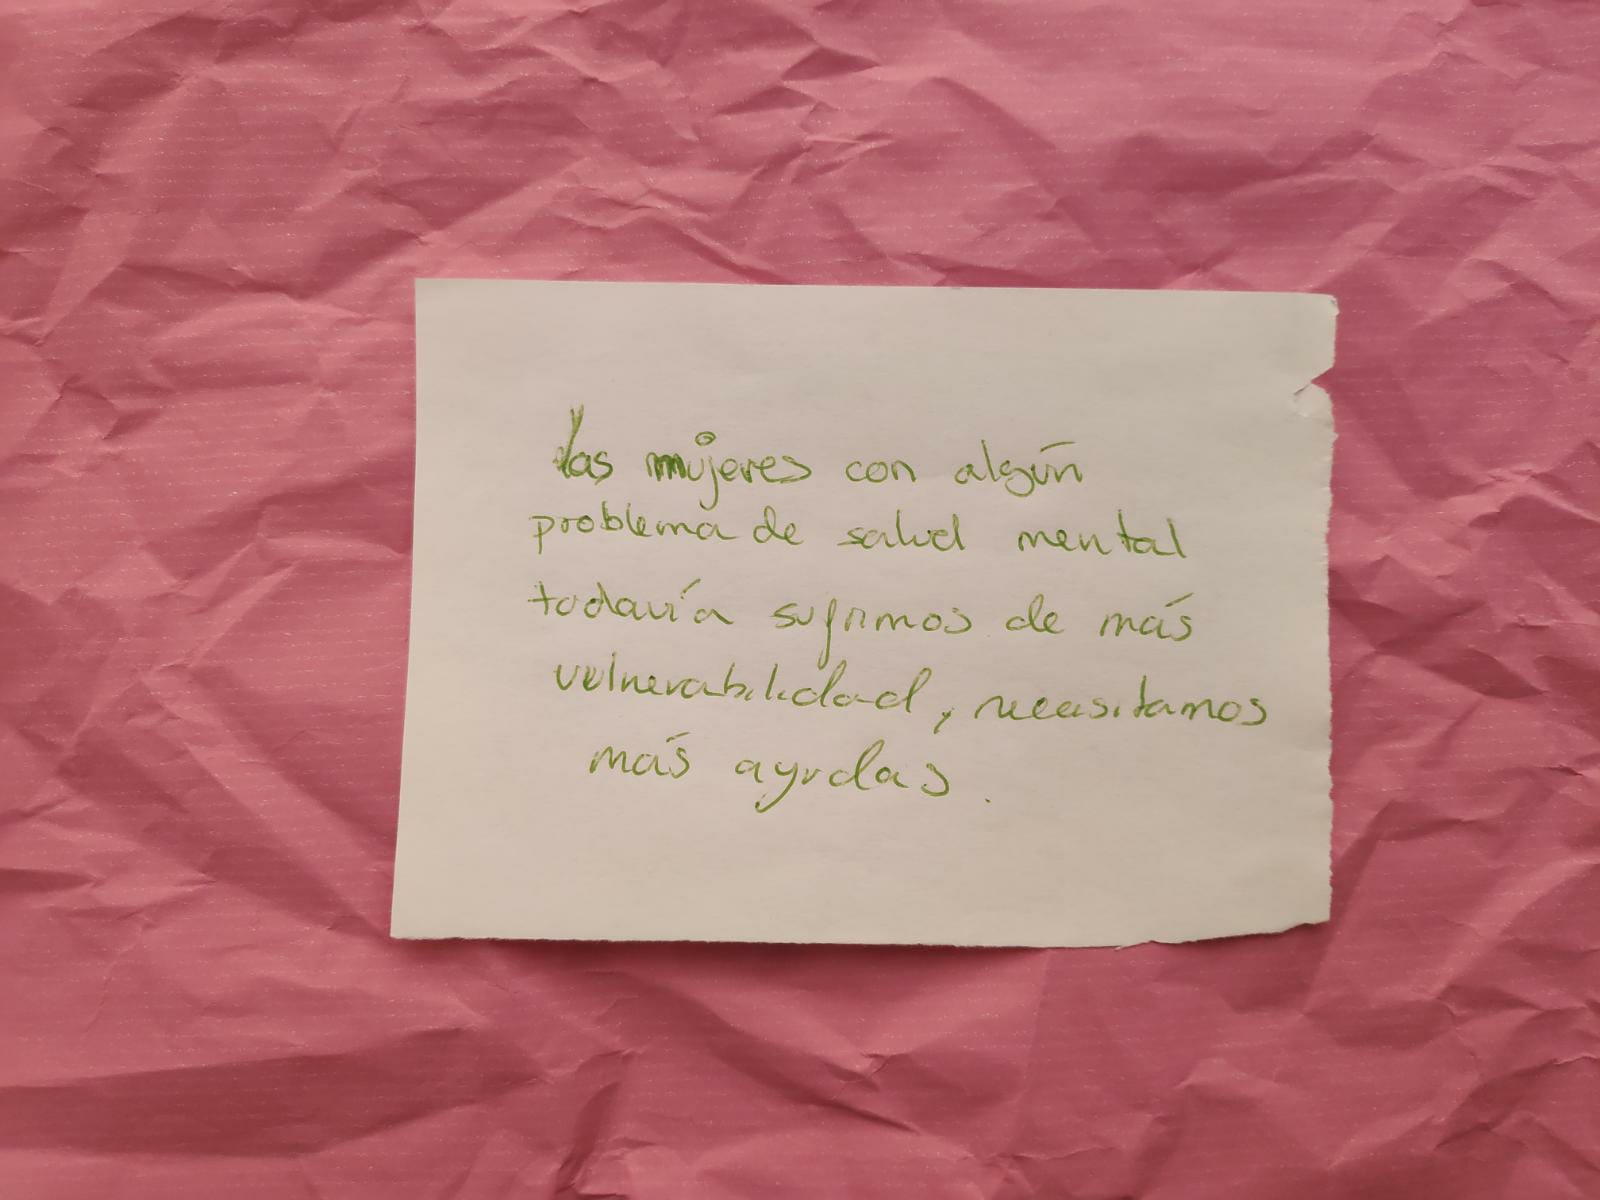 las mujeres con algún
problema de salud mental
todavía sufrimos de más
vulnerabilidad, necesitamos
más ayudas.